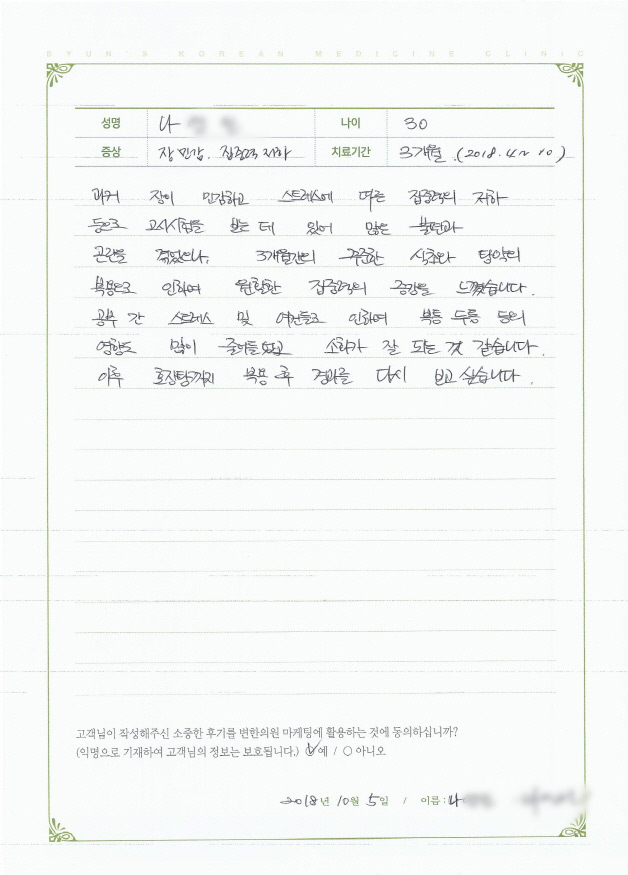 BYUN'S KOREAN MEDICINE CLINIC
성명 나 나이 30
증상 장 민감. 집중력 저하 치료기간 3개월 (2018. 4 ~ 10)
과거 장이 민감하고 스트레스에 따른 집중력의 저하
등으로 고시시험을 보는 데 있어 많은 불편과
곤란을 겪었으나, 3개월간의 꾸준한 식초와 탕약의
복용으로 인하여 원활한 집중력의 증강을 느꼈습니다.
공부 간 스트레스 및 여건들로 인하여 복통 두통 등의
영향도 많이 줄어들었고 소화가 잘 되는 것 같습니다.
이후 복용 후 경과를 다시 보고 싶습니다.
고객님이 작성해주신 소중한 후기를 변한의원 마케팅에 활용하는 것에 동의하십니까?
(익명으로 기재하여 고객님의 정보는 보호됩니다.) ○ 예 / ○ 아니오
2018년 10월 5일 / 이름 : 나